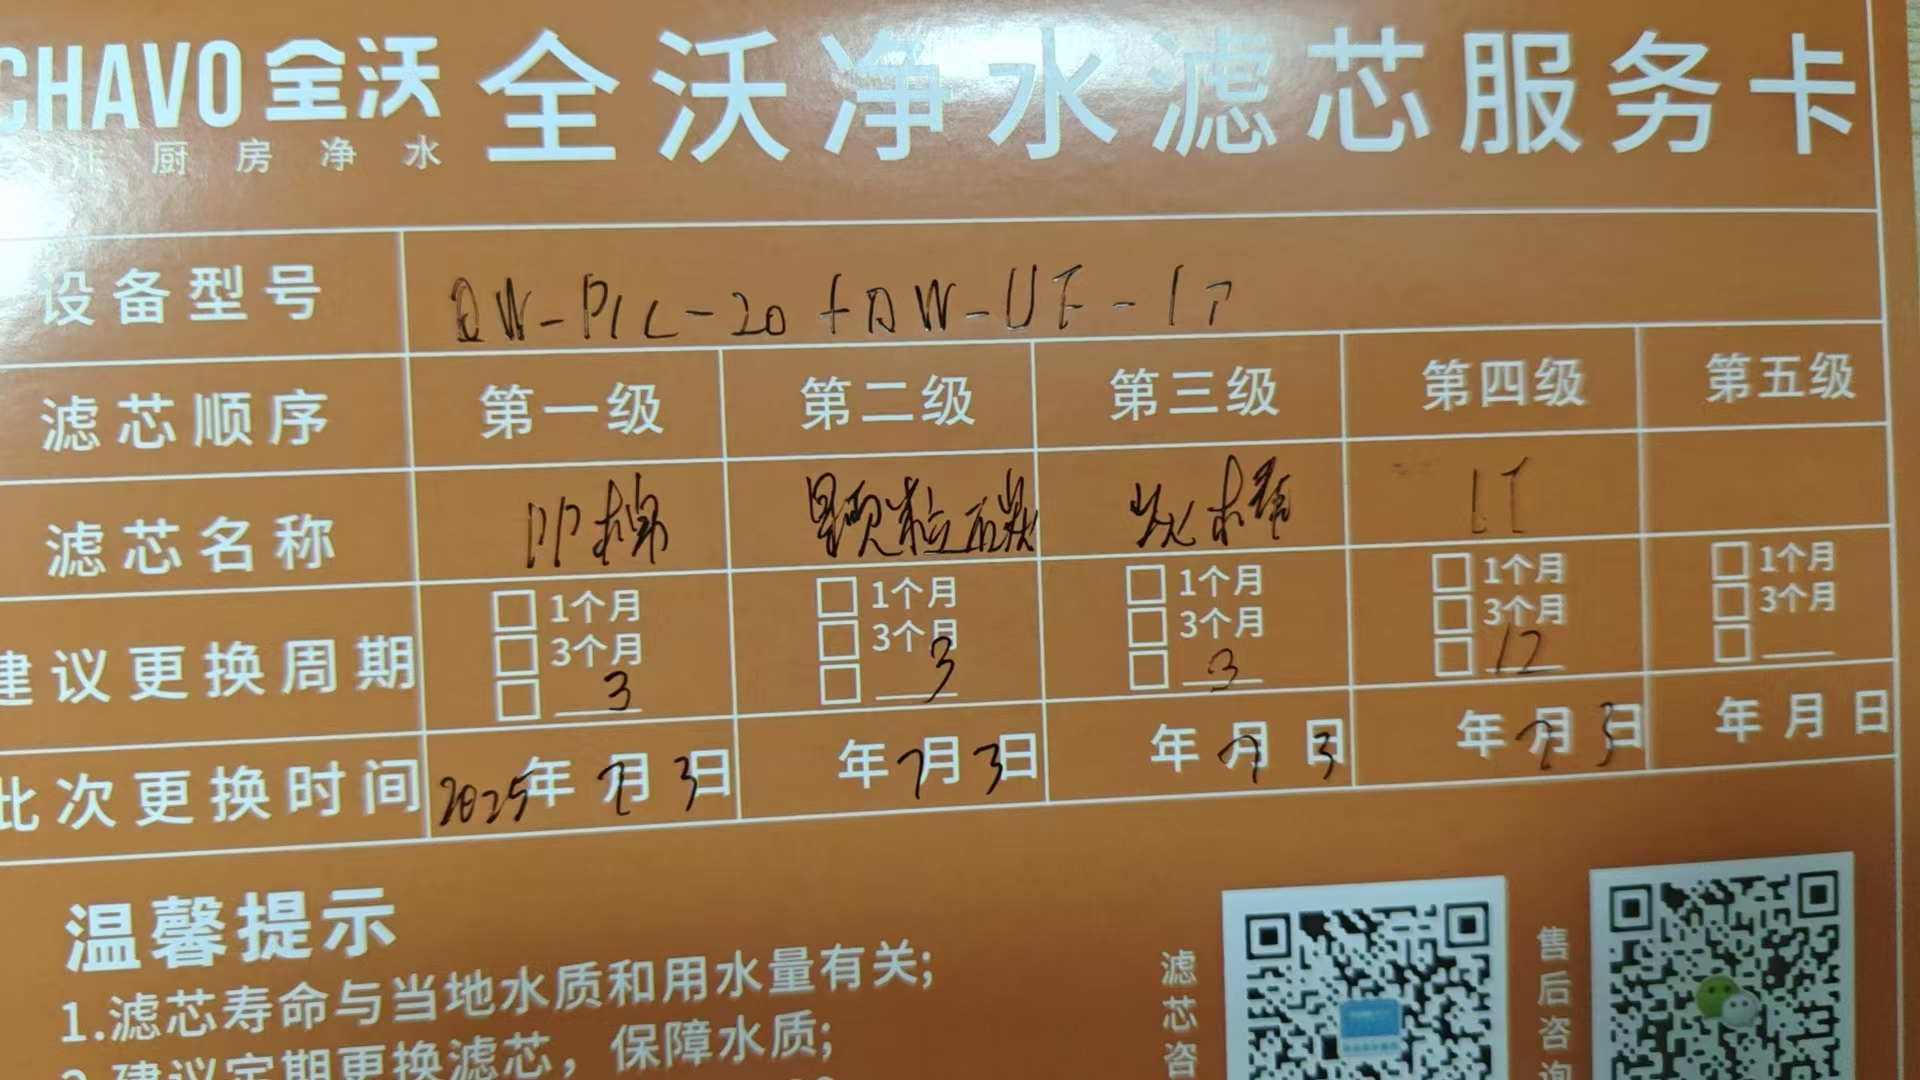 CHAVO 全沃
厨房净水
全沃净水滤芯服务卡
设备型号 QW-PLC-20+QW-UF-1T
滤芯顺序 第一级 第二级 第三级 第四级 第五级
滤芯名称 PP棉 颗粒碳 炭棒
建议更换周期 1个月 3个月 3 1个月 3个月 3 1个月 3个月 3 1个月 3个月 12 1个月 3个月
此次更换时间 2025年7月3日 年7月3日 年7月3日 年7月3日 年月日
温馨提示
1.滤芯寿命与当地水质和用水量有关;
2.建议定期更换滤芯，保障水质;
滤芯咨
售后咨询